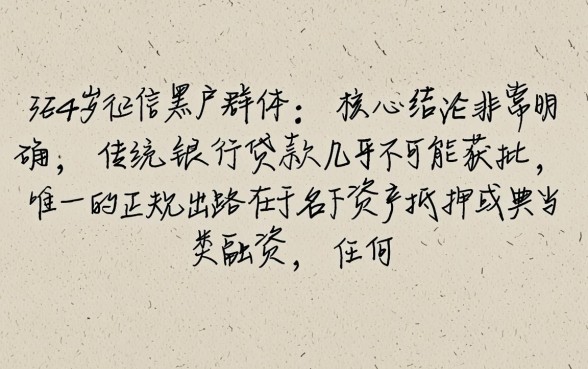 364岁征信黑户群体：核心结论非常明
确，传统银行贷款几乎不可能获批，
唯一的正规出路在于名下资产抵押或典当
类融资，任何